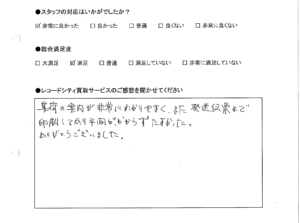 ●スタッフの対応はいかがでしたか？
☑非常に良かった □良かった □普通 □良くない □非常に良くない
●総合満足度
□大満足 ☑満足 □普通 □満足していない □非常に満足していない
●レコードシティ買取サービスのご感想を聞かせてください
集荷の案内が非常にわかりやすく、また発送伝票まで
印刷してあり手間がかからず助かった。
ありがとうございました。